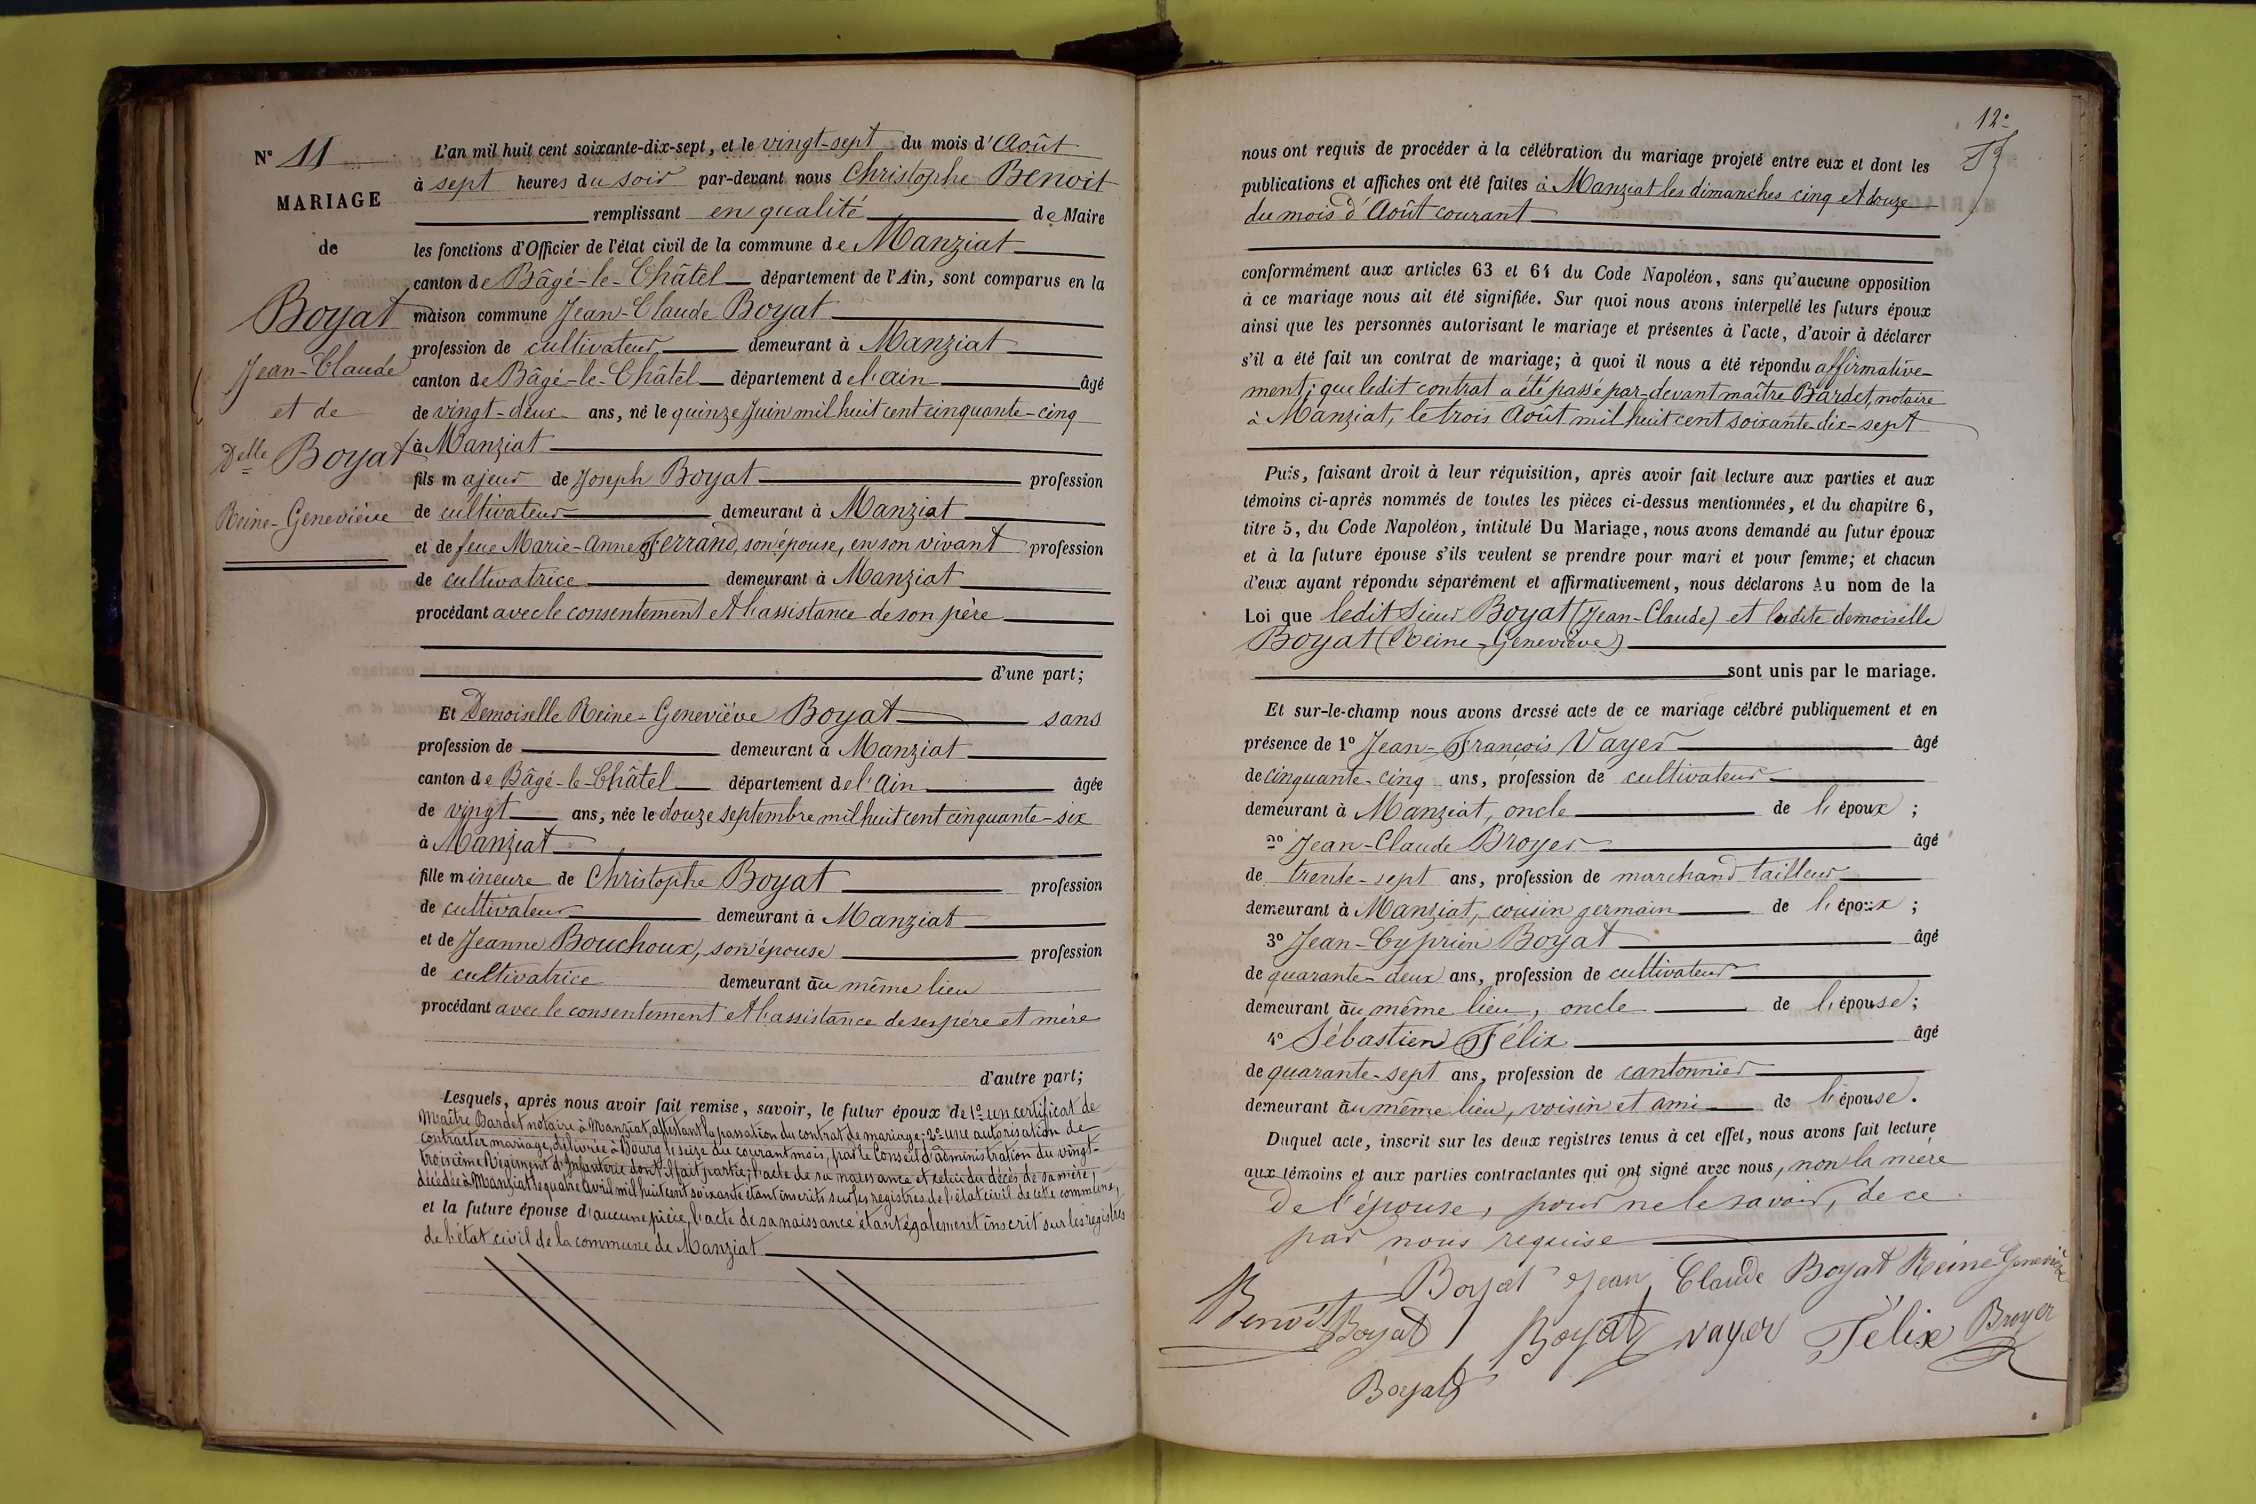 Nº 11
MARIAGE
de
Boyat
Jean-Claude
et de
Delle Boyat
Reine-Geneviève
L'an mil huit cent soixante-dix-sept, et le vingt-sept du mois d'Août
à sept heures du soir par-devant nous Christophe Benoit
remplissant en qualité de Maire
les fonctions d'Officier de l'état civil de la commune de Manziat
canton de Bâgé-le-Châtel département de l'Ain, sont comparus en la
maison commune Jean-Claude Boyat
profession de cultivateur demeurant à Manziat
canton de Bâgé-le-Châtel département de l'ain âgé
de vingt-deux ans, né le quinze Juin mil huit cent cinquante-cinq
à Manziat
fils majeur de Joseph Boyat profession
de cultivateur demeurant à Manziat
et de feue Marie-Anne Ferrand, son épouse, en son vivant profession
de cultivatrice demeurant à Manziat
procédant avec le consentement et l'assistance de son père
d'une part;
Et Demoiselle Reine-Geneviève Boyat sans
profession de demeurant à Manziat
canton de Bâgé-le-Châtel département de l'ain âgée
de vingt ans, née le douze septembre mil huit cent cinquante-six
à Manziat
fille mineure de Christophe Boyat profession
de cultivateur demeurant à Manziat
et de Jeanne Bouchoux, son épouse profession
de cultivatrice demeurant au même lieu
procédant avec le consentement et l'assistance de ses père et mère
d'autre part;
Lesquels, après nous avoir fait remise, savoir, le futur époux de 1º un certificat de
Maître Bardet notaire à Manziat, attestant la passation du contrat de mariage; 2º une autorisation de
contracter mariage, délivrée à Bourg le seize du courant mois, par le Conseil d'administration du vingt-
troisième Régiment d'Infanterie dont il fait partie; l'acte de sa naissance et celui du décès de sa mère,
décédée à Manziat le quatre avril mil huit cent soixante étant inscrits sur les registres de l'état civil de cette commune,
et la future épouse d'aucune pièce, l'acte de sa naissance étant également inscrit sur les registres
de l'état civil de la commune de Manziat
12º
nous ont requis de procéder à la célébration du mariage projeté entre eux et dont les
publications et affiches ont été faites à Manziat les dimanches cinq et douze
du mois d'Août courant
conformément aux articles 63 et 64 du Code Napoléon, sans qu'aucune opposition
à ce mariage nous ait été signifiée. Sur quoi nous avons interpellé les futurs époux
ainsi que les personnes autorisant le mariage et présentes à l'acte, d'avoir à déclarer
s'il a été fait un contrat de mariage; à quoi il nous a été répondu affirmative-
ment; que ledit contrat a été passé par-devant maître Bardet, notaire
à Manziat, le trois Août mil huit cent soixante-dix-sept
Puis, faisant droit à leur réquisition, après avoir fait lecture aux parties et aux
témoins ci-après nommés de toutes les pièces ci-dessus mentionnées, et du chapitre 6,
titre 5, du Code Napoléon, intitulé Du Mariage, nous avons demandé au futur époux
et à la future épouse s'ils veulent se prendre pour mari et pour femme; et chacun
d'eux ayant répondu séparément et affirmativement, nous déclarons Au nom de la
Loi que ledit Sieur Boyat (Jean-Claude) et ladite demoiselle
Boyat (Reine-Geneviève)
sont unis par le mariage.
Et sur-le-champ nous avons dressé acte de ce mariage célébré publiquement et en
présence de 1º Jean-François Vayer âgé
de cinquante-cinq ans, profession de cultivateur
demeurant à Manziat, oncle de l'époux;
2º Jean-Claude Broyer âgé
de trente-sept ans, profession de marchand tailleur
demeurant à Manziat, cousin germain de l'époux;
3º Jean-Cyprien Boyat âgé
de quarante-deux ans, profession de cultivateur
demeurant au même lieu, oncle de l'épouse;
4º Sébastien Félix âgé
de quarante-sept ans, profession de cantonnier
demeurant au même lieu, voisin et ami de l'épouse.
Duquel acte, inscrit sur les deux registres tenus à cet effet, nous avons fait lecture
aux témoins et aux parties contractantes qui ont signé avec nous, non la mère
de l'épouse, pour ne le savoir, de ce
par nous requise
Boyat Jean Claude Boyat Reine Geneviève
Benoit Boyat Boyat vayer Félix Broyer
Boyat